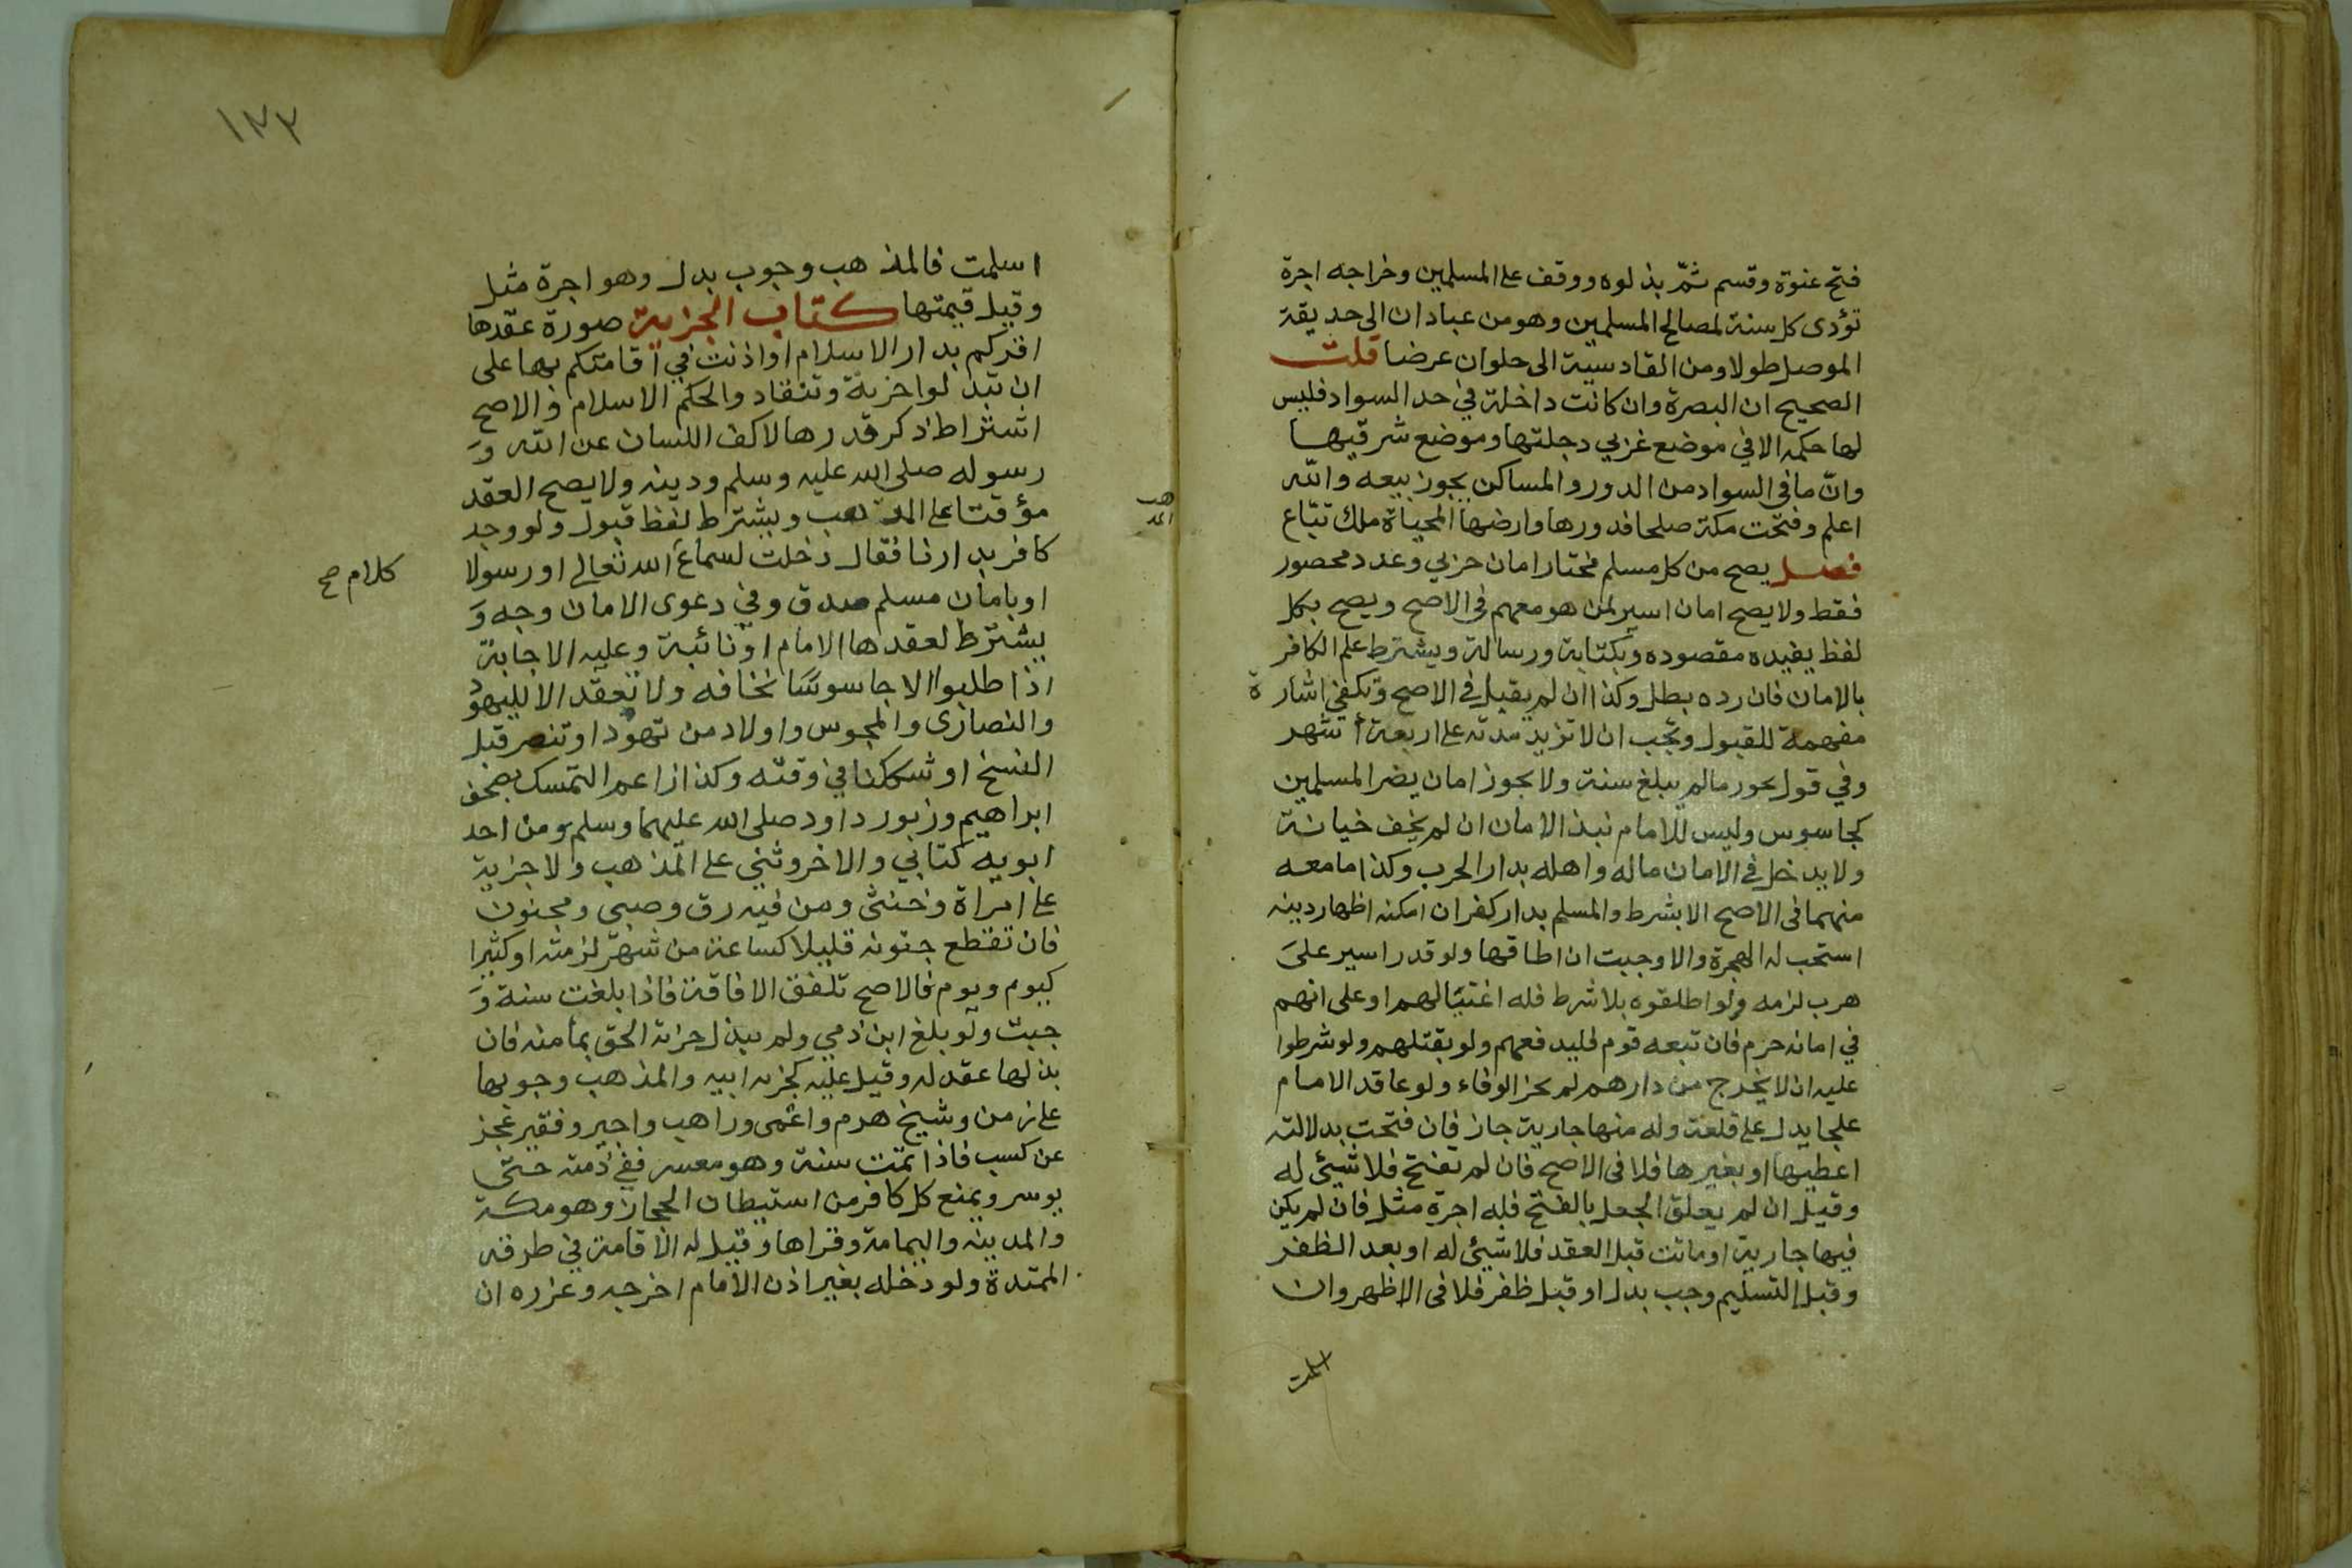 فتح عنوة وقسم ثمّ بذلوه ووقف على المسلمين وخراجه اجرة
تؤدى كل سنة لمصالح المسلمين وهو من عبادان الى حديقة
الموصل طولا ومن القادسية الى حلوان عرضا قلت
الصحيح ان البصرة وان كانت داخلة في حد السواد فليس
لها حكمه الا في موضع غربي دجلتها وموضع شرقيها
وانّ ما في السواد من الدور والمساكن يجوز بيعه والله
اعلم وفتحت مكة صلحا فدورها وارضها المحياة ملك تبّاع
فصل يصح من كل مسلم مختار امان حربي وعدد محصور
فقط ولا يصح امان اسير لمن هو معهم في الاصح ويصح بكل
لفظ يفيده مقصوده وبكتابة ورسالة ويشترط علم الكافر
بالامان فان رده بطل وكذا ان لم يقبل في الاصح وتكفي اشارة
مفهمة للقبول وتجب ان لا تزيد مدته على اربعة أشهر
وفي قول يجوز ما لم يبلغ سنة ولا يجوز امان يضر المسلمين
كجاسوس وليس للامام نبذ الامان ان لم يخف خيانة
ولا يدخل في الامان ماله واهله بدار الحرب وكذا ما معه
منهما في الاصح الا بشرط والمسلم بدار كفر ان امكنه اظهار دينه
استحب له الهجرة والا وجبت ان اطاقها ولو قدر اسير على
هرب لزمه ولو اطلقوه بلا شرط فله اغتيالهم او على انهم
في امانه حرم فان تبعه قوم فليدفعهم ولو بقتلهم ولو شرطوا
عليه ان لا يخرج من دارهم لم يجز الوفاء ولو عاقد الامام
علجا يدل على قلعة وله منها جارية جاز فان فتحت بدلالته
اعطيها او بغيرها فلا في الاصح فان لم تفتح فلا شيئ له
وقيل ان لم يعلق الجعل بالفتح فله اجرة مثل فان لم يكن
فيها جارية او ماتت قبل العقد فلا شيئ له او بعد الظفر
وقبل التسليم وجب بدل او قبل ظفر فلا في الاظهر وان
اسلمت
١٣٣
اسلمت فالمذهب وجوب بدل وهو اجرة مثل
وقيل قيمتها كتاب الجزية صورة عقدها
اقركم بدار الاسلام او اذنت في اقامتكم بها على
ان تبذلوا جزية وتنقادوا لحكم الاسلام والاصح
اشتراط ذكر قدرها لا كف اللسان عن الله و
رسوله صلى الله عليه وسلم ودينه ولا يصح العقد
مؤقتا على المذهب ويشترط لفظ قبول ولو وجد
كافر بدارنا فقال دخلت لسماع الله تعالى او رسولا
كلام صح
او بامان مسلم صدق وفي دعوى الامان وجه و
يشترط لعقدها الامام او نائبة وعليه الاجابة
اذا طلبوا الا جاسوسا نخافه ولا تعقد الا لليهود
والنصارى والمجوس واولاد من تهود او تنصر قبل
النسخ او شككنا في وقته وكذا زاعم التمسك بصحف
ابراهيم وزبور داود صلى الله عليهما وسلم ومن احد
ابويه كتابي والاخر وثني على المذهب ولا جزية
على امراة وخنثى ومن فيه رق وصبي ومجنون
فان تقطع جنونه قليلا كساعة من شهر لزمته او كثيرا
كيوم ويوم فالاصح تلفق الافاقة فاذا بلغت سنة و
جبت ولو بلغ ابن ذمي ولم يبذل جزية الحق بمأمنه فان
بذلها عقد له وقيل عليه كجزية ابيه والمذهب وجوبها
على زمن وشيخ هرم واعمى وراهب واجير وفقير عجز
عن كسب فاذا تمت سنة وهو معسر ففي ذمته حتى
يوسر ويمنع كل كافر من استيطان الحجاز وهو مكة
والمدينه واليمامة وقراها وقيل له الاقامة في طرقه
الممتدة ولو دخله بغير اذن الامام اخرجه وعزره ان